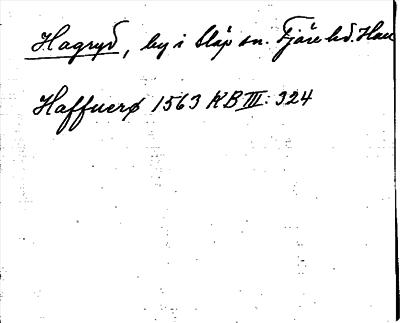 Hagryd, by i Släp sn. Fjäre hd. Hall
Haffuerø 1563 KB III: 324